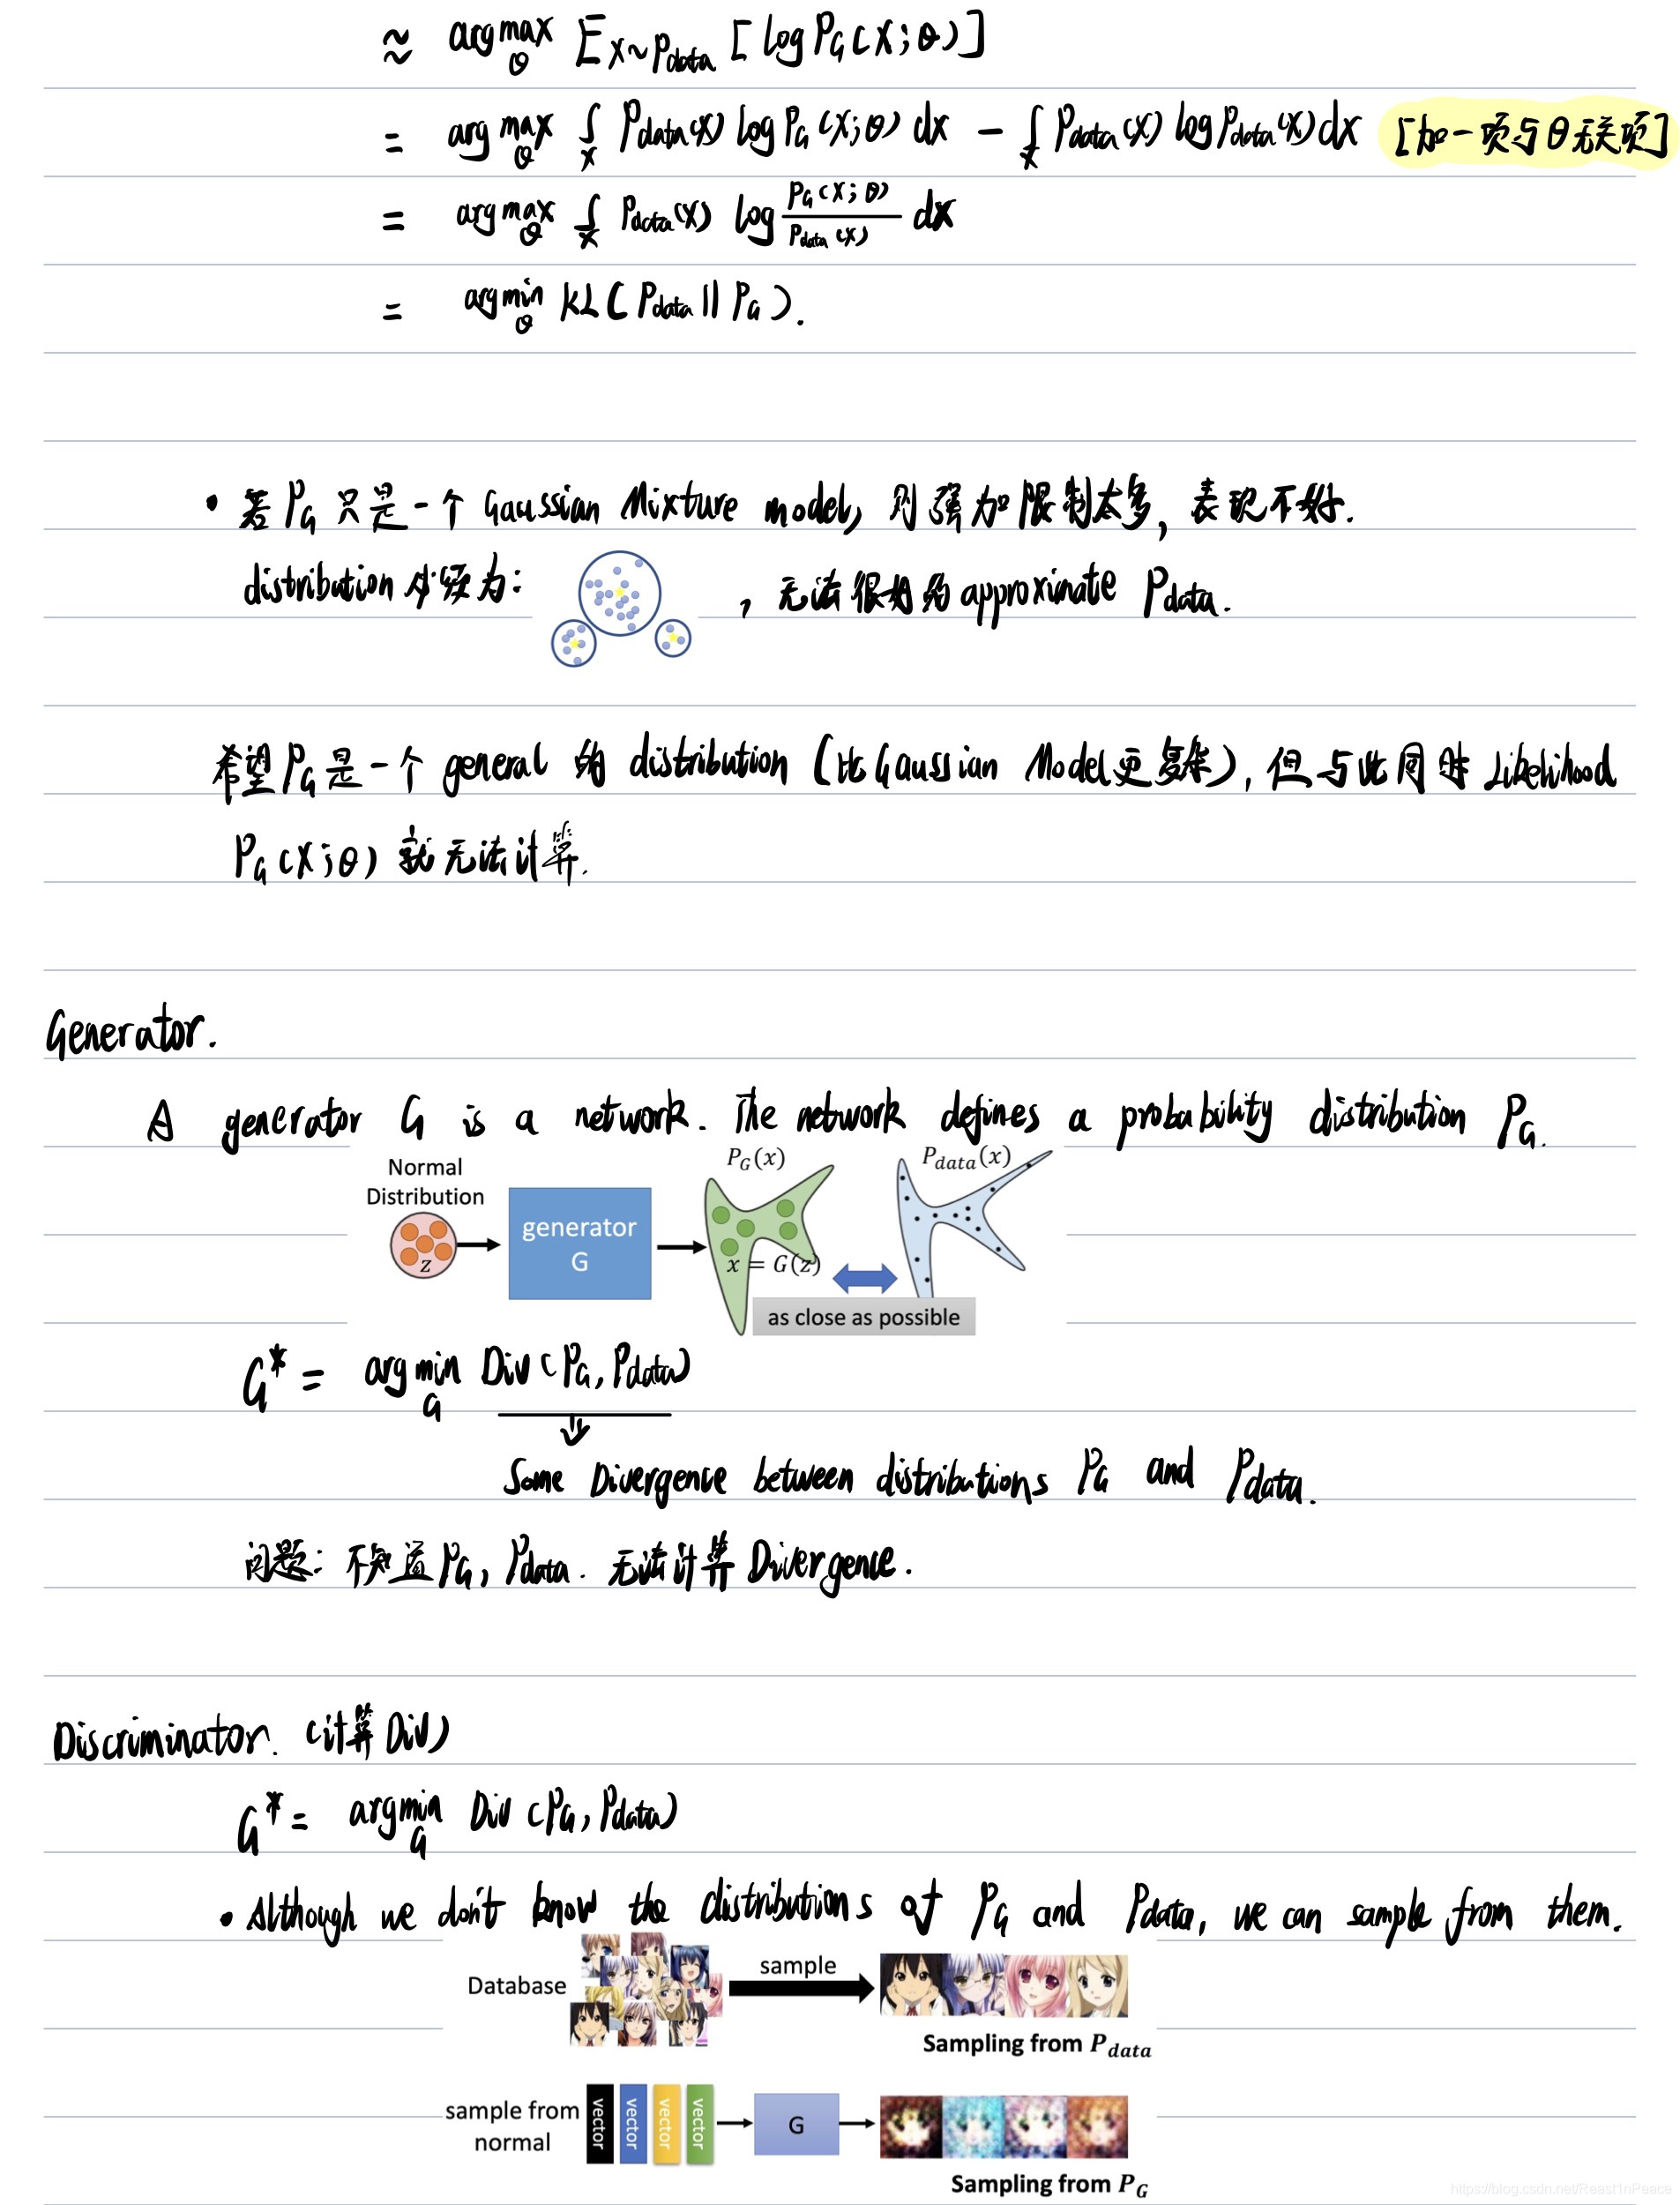 ≈ arg max_θ E_{x~Pdata} [log P_G(x;θ)]
= arg max_θ ∫_x Pdata(x) log P_G(x;θ) dx − ∫_x Pdata(x) log Pdata(x) dx [加一项与θ无关项]
= arg max_θ ∫_x Pdata(x) log P_G(x;θ)/Pdata(x) dx
= arg min_θ KL(Pdata||P_G).
• 若P_G只是一个Gaussian Mixture model, 则强加限制太多, 表现不好.
distribution必须为: , 无法很好的approximate Pdata.
希望P_G是一个general的distribution (比Gaussian Model更复杂), 但与此同时Likelihood
P_G(x;θ) 就无法计算.
Generator.
A generator G is a network. The network defines a probability distribution P_G.
Normal Distribution
z
generator G
P_G(x)
x = G(z)
P_data(x)
as close as possible
G* = arg min_G Div(P_G, Pdata)
Some Divergence between distributions P_G and Pdata.
问题: 不知道P_G, Pdata. 无法计算Divergence.
Discriminator. (计算Div)
G* = arg min_G Div(P_G, Pdata)
• Although we don't know the distributions of P_G and Pdata, we can sample from them.
Database
sample
Sampling from P_data
sample from normal
vector
vector
vector
vector
G
Sampling from P_G
https://blog.csdn.net/Reast1nPeace